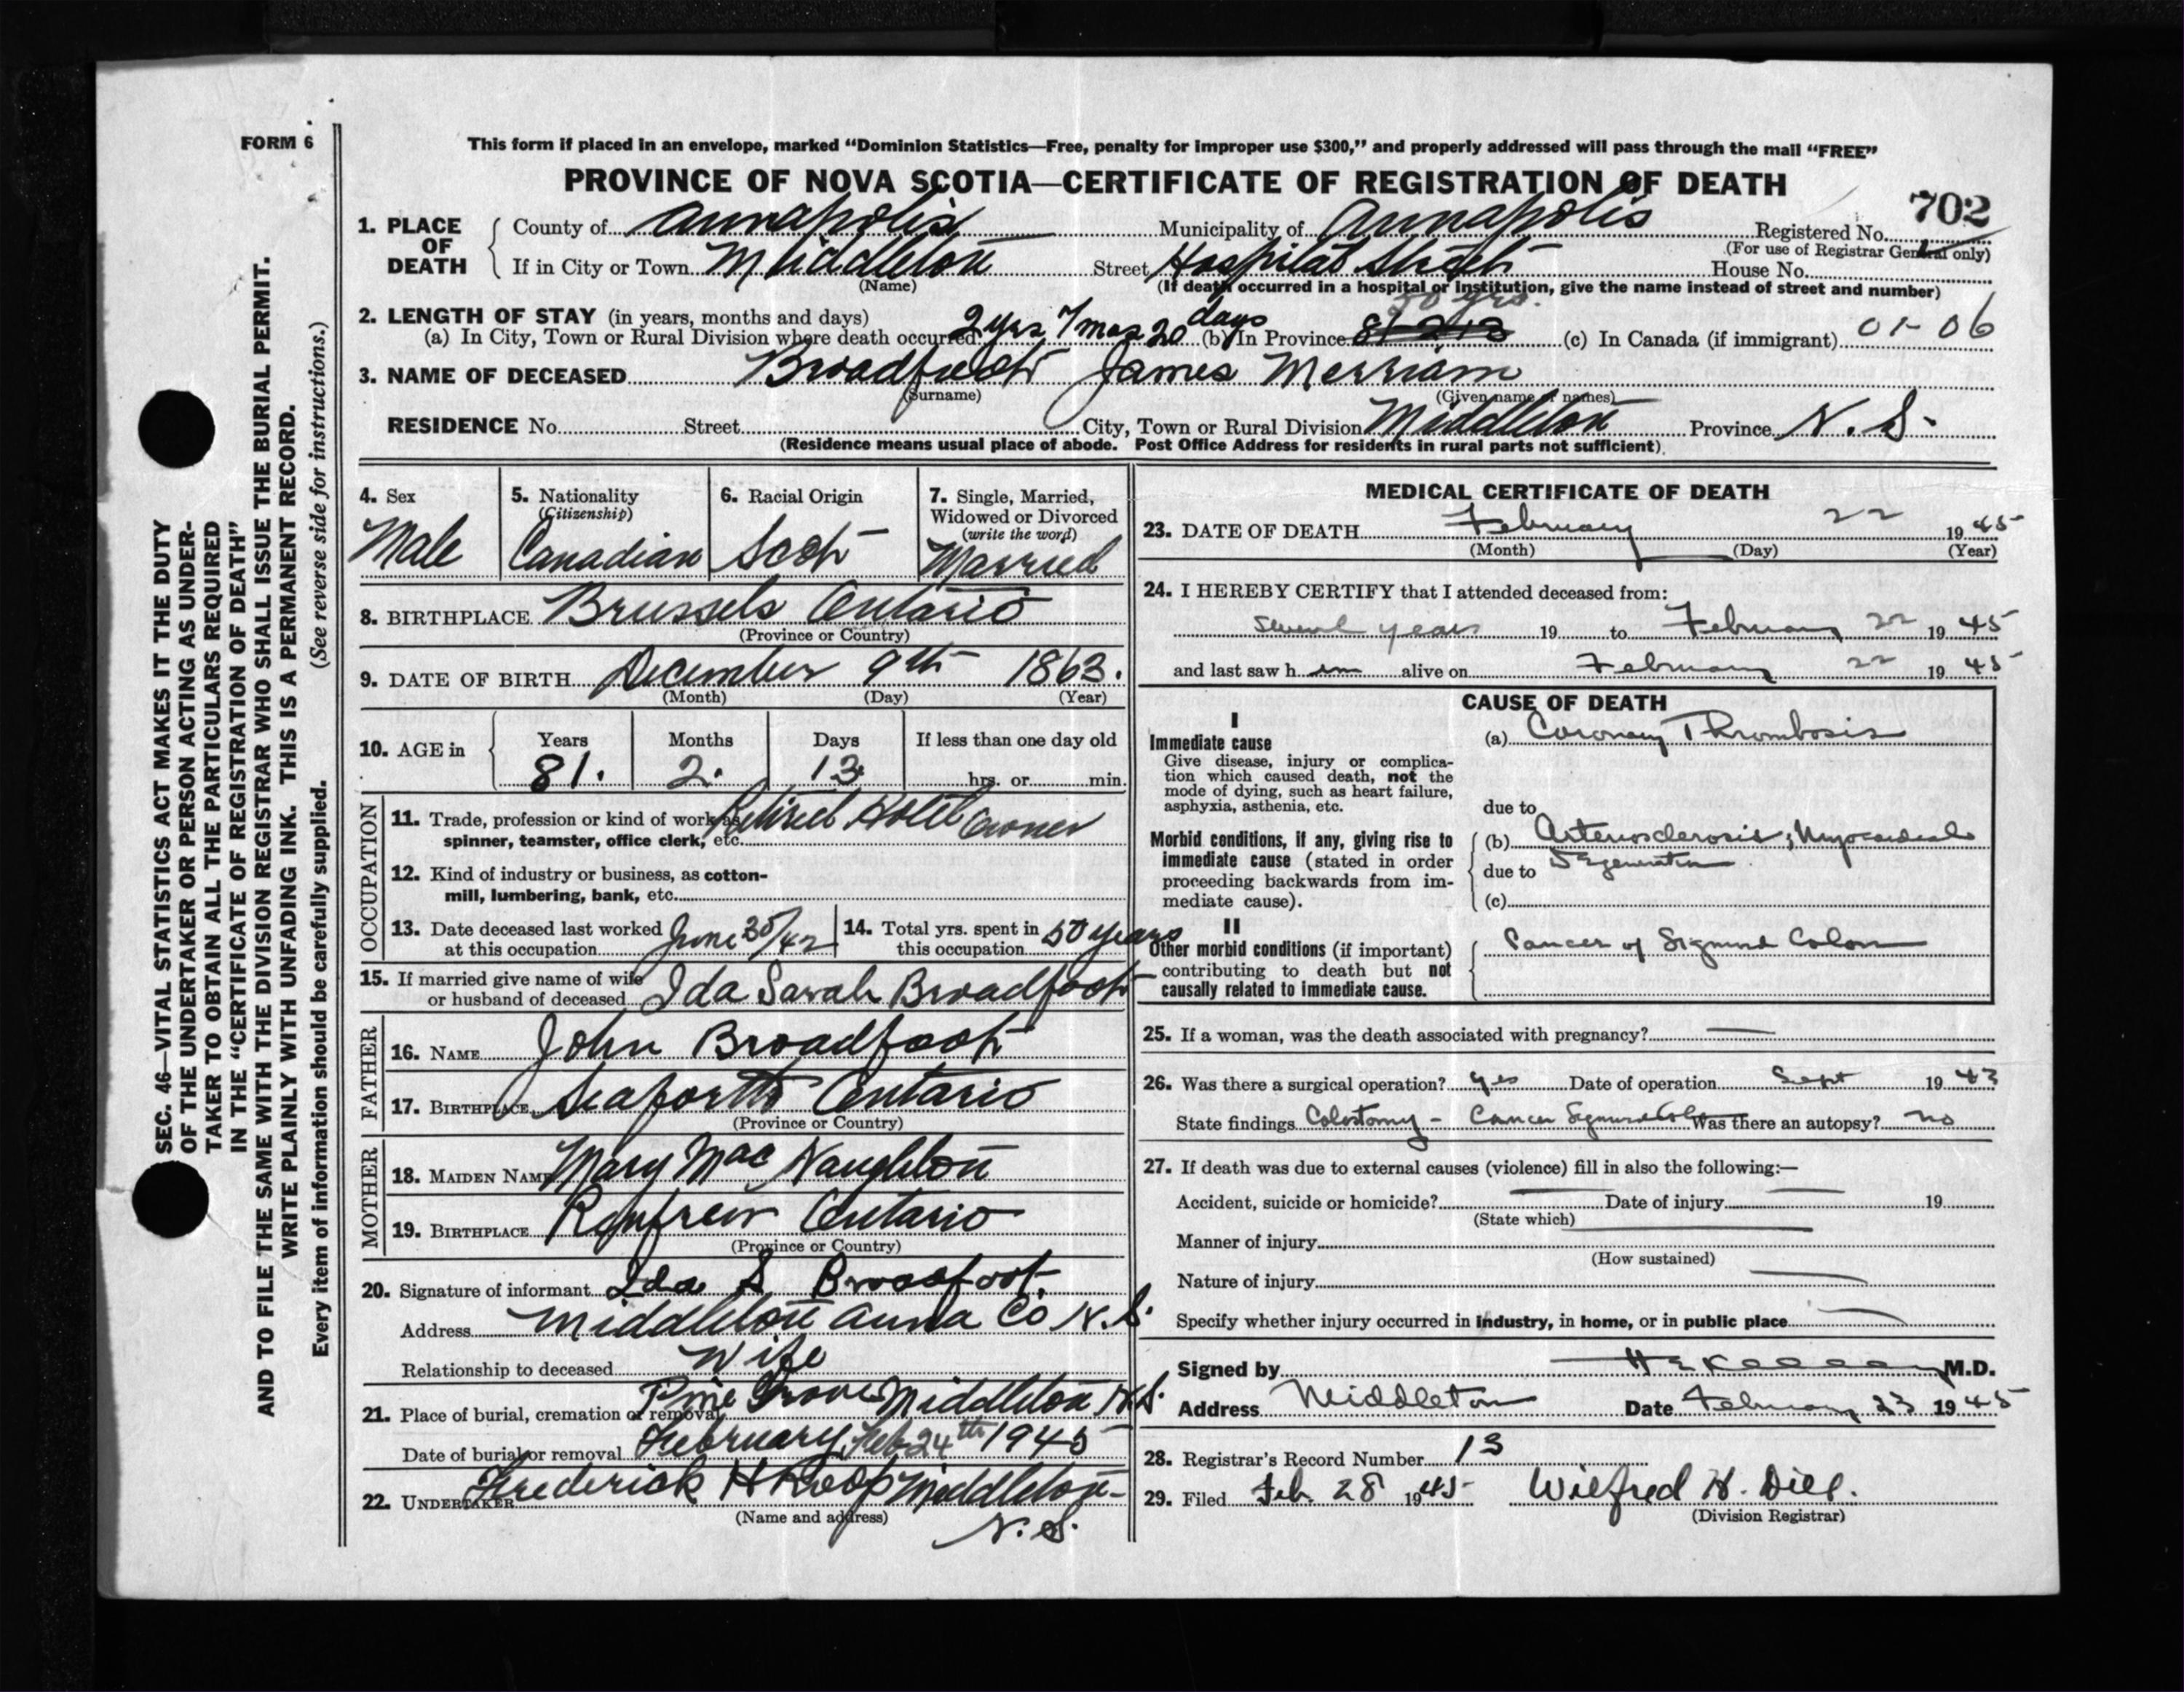 FORM 6
This form if placed in an envelope, marked “Dominion Statistics—Free, penalty for improper use $300,” and properly addressed will pass through the mail “FREE”
PROVINCE OF NOVA SCOTIA—CERTIFICATE OF REGISTRATION OF DEATH
702
1. PLACE OF DEATH { County of Annapolis Municipality of Annapolis Registered No.
(For use of Registrar General only)
If in City or Town Middleton Street Hospital Street House No.
(Name) (If death occurred in a hospital or institution, give the name instead of street and number)
2. LENGTH OF STAY (in years, months and days) 50 yrs.
(a) In City, Town or Rural Division where death occurred. 2 yrs 7 mos 20 days (b) In Province 81-2-13 (c) In Canada (if immigrant) 01-06
3. NAME OF DECEASED Broadfoot James Merriam
(Surname) (Given name or names)
RESIDENCE No. Street City, Town or Rural Division Middleton Province N.S.
(Residence means usual place of abode. Post Office Address for residents in rural parts not sufficient).
4. Sex Male
5. Nationality (Citizenship) Canadian
6. Racial Origin Scot
7. Single, Married, Widowed or Divorced (write the word) Married
8. BIRTHPLACE Brussels Ontario
(Province or Country)
9. DATE OF BIRTH December 9th 1863.
(Month) (Day) (Year)
10. AGE in { Years 81. Months 2. Days 13 If less than one day old hrs. or min.
OCCUPATION
11. Trade, profession or kind of work as Retired Hotel Owner
spinner, teamster, office clerk, etc.
12. Kind of industry or business, as cotton-
mill, lumbering, bank, etc.
13. Date deceased last worked at this occupation June 30/42
14. Total yrs. spent in this occupation 50 years
15. If married give name of wife or husband of deceased Ida Sarah Broadfoot
FATHER
16. NAME John Broadfoot
17. BIRTHPLACE Seaforth Ontario
(Province or Country)
MOTHER
18. MAIDEN NAME Mary MacNaughton
19. BIRTHPLACE Renfrew Ontario
(Province or Country)
20. Signature of informant Ida S Broadfoot.
Address Middleton Anna Co N.S.
Relationship to deceased Wife
21. Place of burial, cremation or removal Pine Grove Middleton N.S.
Date of burial or removal February Feb 24th 1945
22. UNDERTAKER Frederick H Roop Middleton
(Name and address)
N.S.
MEDICAL CERTIFICATE OF DEATH
23. DATE OF DEATH February 22 1945
(Month) (Day) (Year)
24. I HEREBY CERTIFY that I attended deceased from:
several years 19 to February 22 1945
and last saw him alive on February 22 1945
CAUSE OF DEATH
I
Immediate cause (a) Coronary Thrombosis
Give disease, injury or complica-
tion which caused death, not the
mode of dying, such as heart failure,
asphyxia, asthenia, etc. due to
Morbid conditions, if any, giving rise to (b) Arteriosclerosis; Myocardial
immediate cause (stated in order due to Degeneration
proceeding backwards from im-
mediate cause). (c)
II
Other morbid conditions (if important) Cancer of Sigmoid Colon
contributing to death but not
causally related to immediate cause.
25. If a woman, was the death associated with pregnancy?
26. Was there a surgical operation? yes Date of operation Sept 1943
State findings Colostomy - Cancer Sigmoid Colon Was there an autopsy? no
27. If death was due to external causes (violence) fill in also the following:—
Accident, suicide or homicide? Date of injury 19
(State which)
Manner of injury
(How sustained)
Nature of injury
Specify whether injury occurred in industry, in home, or in public place
Signed by M.D.
Address Middleton Date February 23 1945
28. Registrar's Record Number 13
29. Filed Feb. 28 1945 Wilfred H. Dill.
(Division Registrar)
SEC. 46—VITAL STATISTICS ACT MAKES IT THE DUTY
OF THE UNDERTAKER OR PERSON ACTING AS UNDER-
TAKER TO OBTAIN ALL THE PARTICULARS REQUIRED
IN THE “CERTIFICATE OF REGISTRATION OF DEATH”
AND TO FILE THE SAME WITH THE DIVISION REGISTRAR WHO SHALL ISSUE THE BURIAL PERMIT.
WRITE PLAINLY WITH UNFADING INK. THIS IS A PERMANENT RECORD.
Every item of information should be carefully supplied. (See reverse side for instructions.)